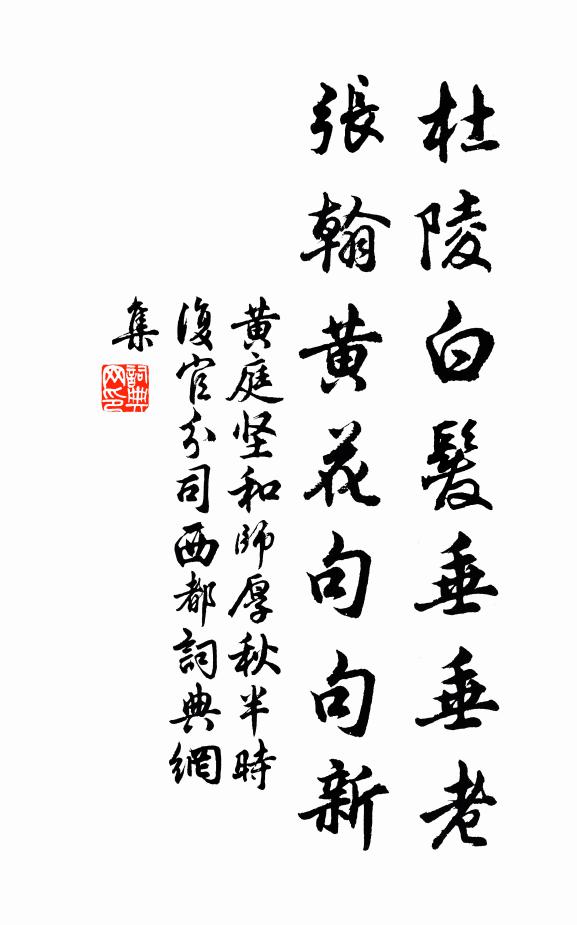 杜陵白髮垂垂老
張翰黄花句句新
黄庭坚和師厚秋半時
復官分司西都詞典網
集
詞典
网印